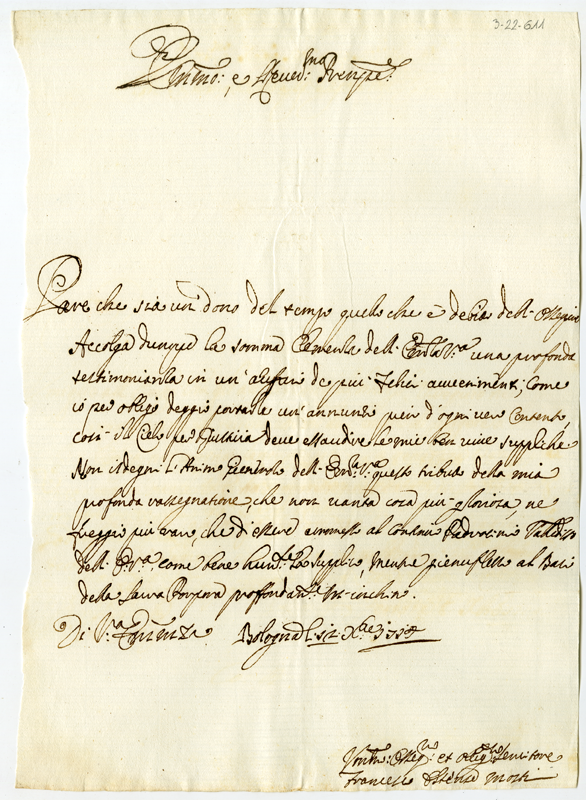 3-22-611
Em̃mo: e Rever.mo Prenpe:
Pare che sia un' dono del tempo quello che è debito dell' ossequio
Accolga dunque la somma Clemenza dell' Em̃za V.a una profonda
testimonianza in un' di più felici avvenimenti, come
io per obligo deggio portarle un' annunzio pien d'ogni vero contento
così il Cielo per Giustizia deve essaudire le mie ben vive suppliche
Non isdegni l'Animo Generoso dell' Em̃.a V.a questo tributo della mia
profonda rassegnatione, che non vanta cosa più gloriosa ne
freggio più raro, che d'essere ammesso al
dell' E. V.a come bene hum.te la supplico, mentre genuflesso al Bacio
della Sacra Porpora proffondam.te m'inchino.
Di V.a Eminenza Bologna li Xbre
Hum.mo Osseq.mo et Oblig.mo Servitore
Francesco Mosti